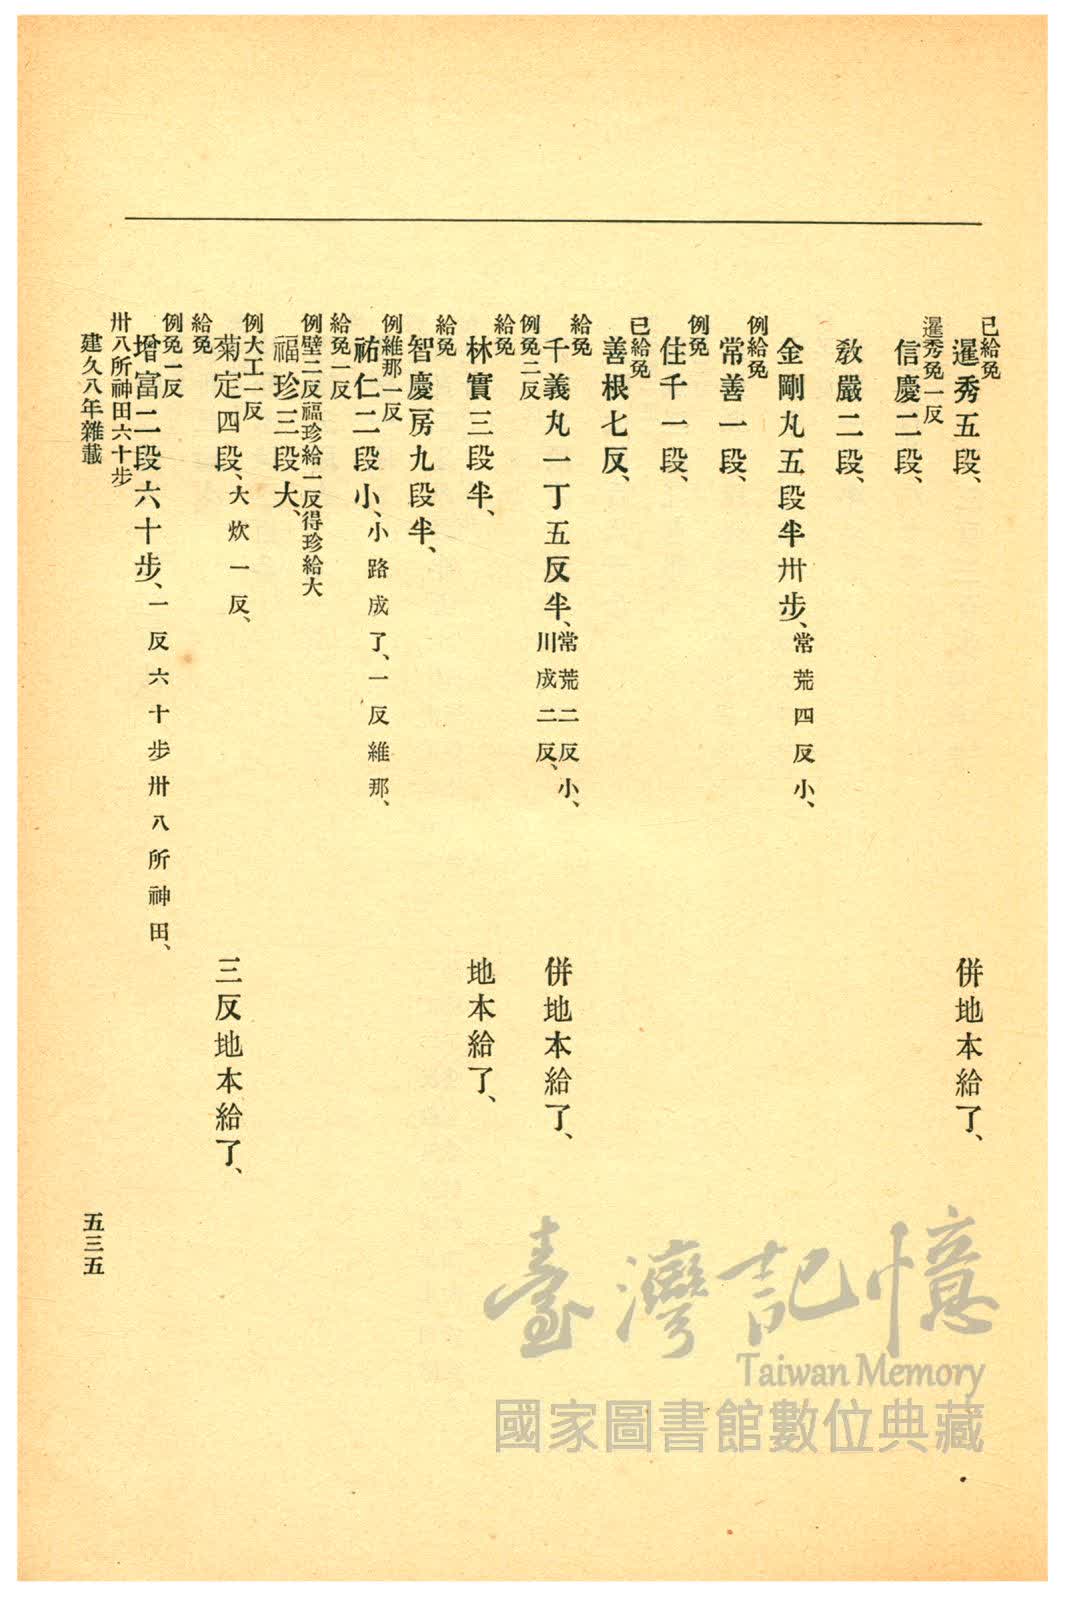 已給免
暹秀五段、　併地本給了、
暹秀免一反
信慶二段、
敎嚴二段、
金剛丸五段半卅步、常荒四反小、
例給免
常善一段、
例免
住千一段、
已給免
善根七反、
給免
千義丸一丁五反半、常荒二反小、川成二反、　併地本給了、
例免二反
給免
林實三段半、　地本給了、
給免
智慶房九段半、
例維那一反
祐仁二段小、小路成了、一反維那、
給免一反
例壁二反福珍給一反得珍給大
福珍三段大、
例大工一反
菊定四段、大炊一反、　三反地本給了、
給免
例免一反
增富二段六十步、一反六十步卅八所神田、
卅八所神田六十步
建久八年雜載
五三五
臺灣記憶
Taiwan Memory
國家圖書館數位典藏